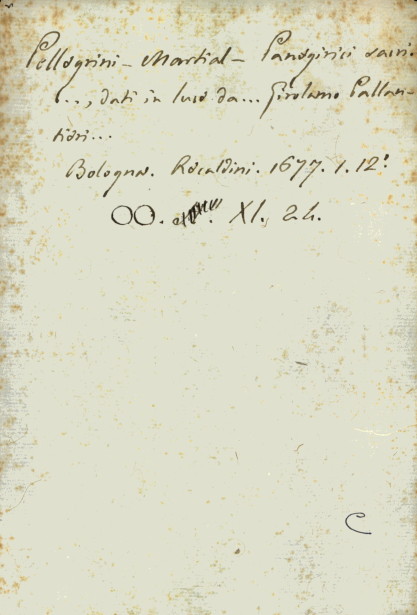 Pellegrini - Martial - Panegirici sacri.
..., dati in luce da... Girolamo Pallan-
tieri...
Bologna. Recaldini. 1677. 1. 12º
OO. XI. 24.
C